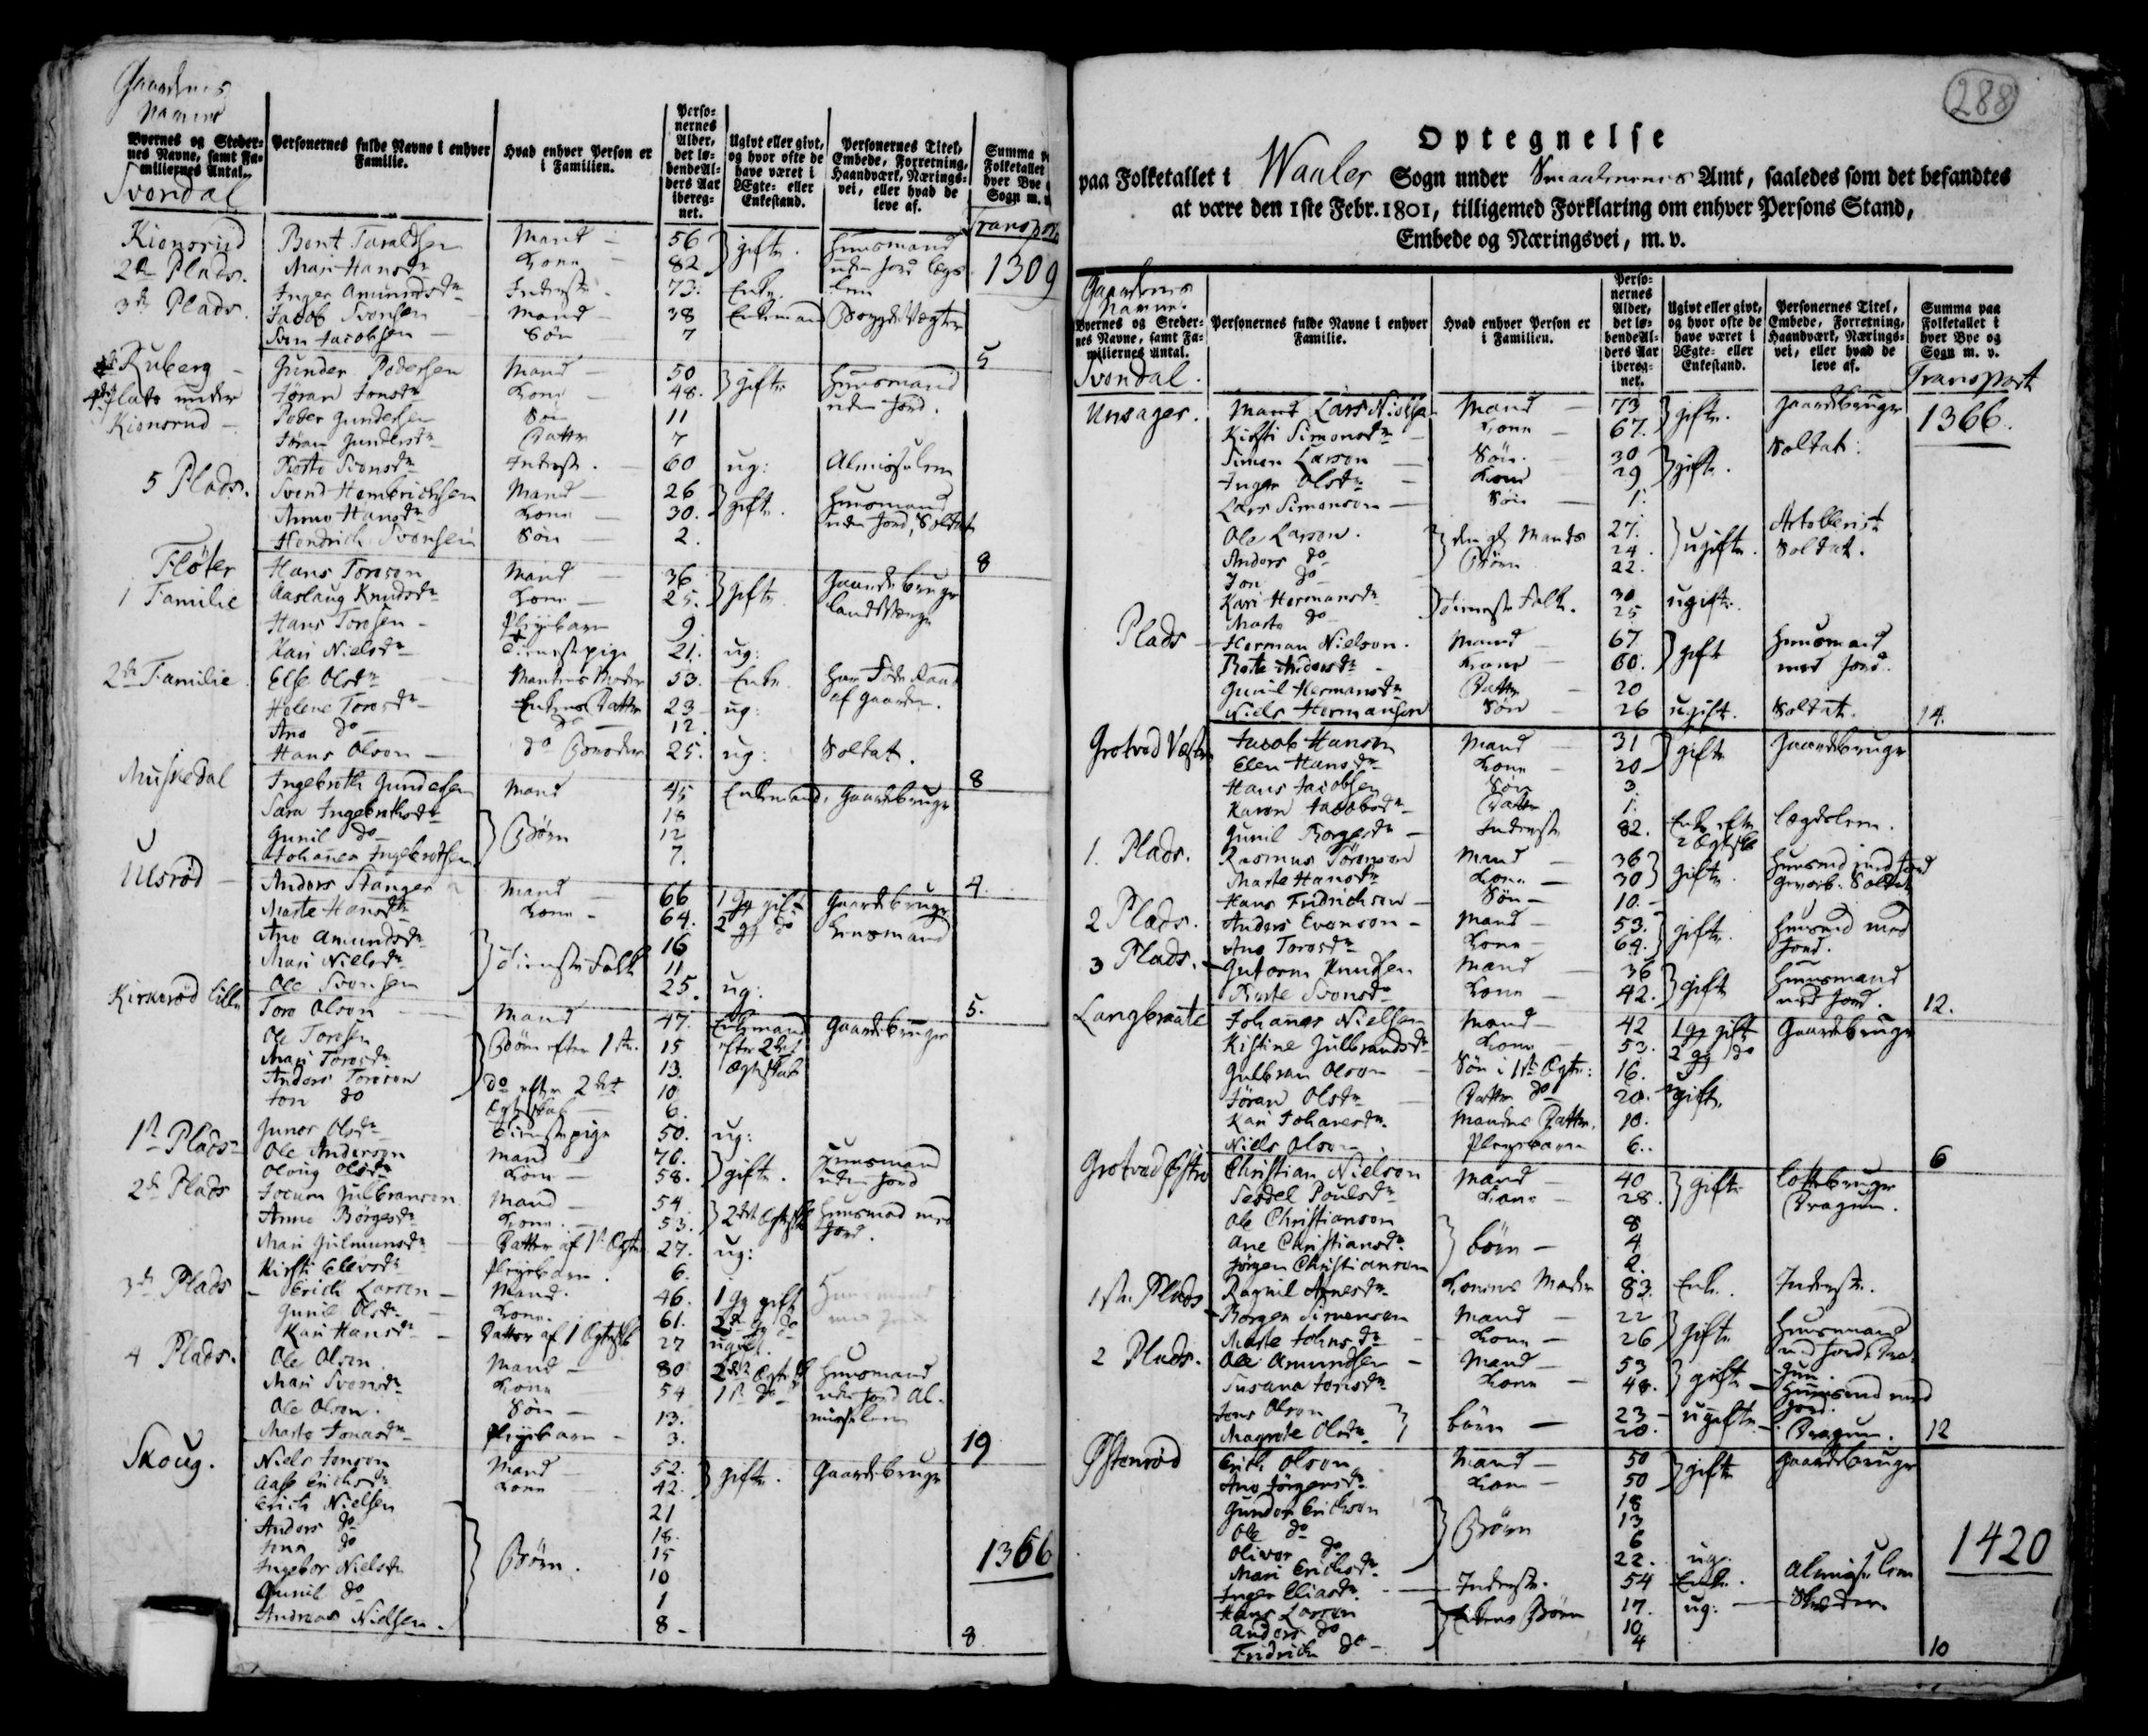 Gaardenes
Navne
Byernes og Steder-
nes Navne, samt Fa-
miliernes Antal.
Personernes fulde Navne i enhver
Familie.
Hvad enhver Person er
i Familien.
Perso-
nernes
Alder,
det lø-
bende Al-
ders Aar
ibereg-
net.
Ugivt eller givt,
og hvor ofte de
have været i
Ægte- eller
Enkestand.
Personernes Titel,
Embede, Forretning,
Haandværk, Nærings-
vei, eller hvad de
leve af.
Summa
Folketallet
hver Bye
Sogn m.
Svendal
Transport
1309
Kionsrud Bent Taraldsen Mand 56 gifte. Huusmand
2de Plads. Mari Hansdr Kone 82 uden Jord
Inger Amundsdr Inderste 73. Enke.
3de Plads. Jacob Svensen Mand 38 Enkemand
Sven Jacobsen Søn 7
5
Ruberg Gunder Pedersen Mand 50 gifte Huusmand
4de Plads under Jøran Jensdr Kone 48. uden Jord.
Kionsrud Peder Gundersen Søn 11
Jøran Gundersdr Datter 7
Svensdr Inderste. 60 ug: Almisselem
5 Plads. Svend Hendrichsen Mand 26 gifte. Huusmand
Anne Hansdr Kone 30. uden Jord, Soldat
Hendrich Svensen Søn 2.
8
Fløter Hans Toresen Mand 36 gifte Gaardebruger
1 Familie Aaslaug Knudsdr Kone 25.
Hans Toresen Pleyebarn 9
Kari Nielsdr Tienestepige 21. ug:
2de Familie Else Olsdr Mandens Moder 53. Enke Har Føde Raad
Helene Toresdr Enkens Datter 23 ug: af Gaarden.
Ane do do 12.
Hans Olsen do Broder 25. ug: Soldat.
8
Muskedal Ingebreth Gundersen Mand 45 Enkemand, Gaardebruger
Sara Ingebrethsdr Børn 18
Gunil do 12
Johannes Ingebretsen 7.
4.
Ulsrød Anders Stanger Mand 66 1 gg gift Gaardebruger
Marte Hansdr Kone 64. 2 gg do
Ane Amundsdr Tieneste Folk 16
Mari Nielsdr 11
Ole Svensen 25. ug:
5.
Kirkerød lille Tore Olsen Mand 47. Enkemand Gaardebruger
Ole Toresen Børn efter 1ste. 15 efter 2det
Mari Toresdr 13. Ægteskab
Anders Toresen do efter 2det 10
Jon do Ægteskab 6.
Gunor Olsdr Tienestepige 50. ug:
1st Plads Ole Andersen Mand 70. gifte. Huusmand
Oloug Olsdr Kone 58. uden Jord
2de Plads Jocum Gulbransen Mand 54 2det Huusmand med
Anne Børgesdr Kone 53. Jord.
Mari Gulmunsdr Datter af 1st Ægte 27. ug:
Kirsti Elevsdr Pleyebarn. 6.
3de Plads Erich Larsen Mand. 46. 1 gg gift
Gunil Olsdr Kone. 61. 2de gg do
Kari Hansdr Datter af 1 27 ugift.
4 Plads. Ole Olsen Mand 80 2det Huusmand
Mari Svensdr Kone 54 1st do uden Jord Al-
Ole Olsen. Søn 13. misselem
Marte Jonasdr Pleyebarn 3.
19
Skoug. Niels Jensen Mand 52. gifte. Gaardebruger
Aase Erichsdr Kone 42.
Erich Nielsen Børn. 21
Anders do 18.
Jens do 15
Ingebor Nielsdr 10
Gunil do 1
Andreas Nielsen. 8
8
1366
288
Optegnelse
paa Folketallet i Waaler Sogn under Smaalenenes Amt, saaledes som det befandtes
at være den 1ste Febr. 1801, tilligemed Forklaring om enhver Persons Stand,
Embede og Næringsvei, m. v.
Gaardenes
Navne.
Byernes og Steder-
nes Navne, samt Fa-
miliernes Antal.
Personernes fulde Navne i enhver
Familie.
Hvad enhver Person er
i Familien.
Perso-
nernes
Alder,
det lø-
bende Al-
ders Aar
ibereg-
net.
Ugivt eller givt,
og hvor ofte de
have været i
Ægte- eller
Enkestand.
Personernes Titel,
Embede, Forretning,
Haandværk, Nærings-
vei, eller hvad de
leve af.
Summa paa
Folketallet i
hver Bye og
Sogn m. v.
Svendal.
Transport
1366.
Unsager. Lars Nielsen Mand 73 gifte. Gaardebruger
Kirsti Simonsdr Kone 67.
Simen Larsen Søn. 30 gifte. Soldat.
Inger Olsdr Kone 29
Lars Simensen Søn 1.
Ole Larsen. Mands 27. ugifte.
Anders do Børn 24. Soldat.
Jon do 22.
Kari Hermansdr Tieneste Folk. 30 ugifte.
Marte do 25
Plads Herman Nielsen. Mand 67 gift Huusmand
Berte Andersdr Kone 60. med Jord.
Gunil Hermansdr Datter 20
Niels Hermansen Søn 26 ugift. Soldat.
14.
Grotved Vestre Jacob Hansen Mand 31 gifte Gaardebruger
Elen Hansdr Kone 20
Hans Jacobsen Søn 3.
Karen Jacobsdr Datter 1.
Gunil Borgesdr Inderste 82. Enke efter Lægdslem.
1. Plads. Rasmus Sørensen Mand 36 gifte. Huusmd med Jord
Marte Hansdr Kone 30 Soldat
Hans Fridrichsen Søn 10.
2 Plads. Anders Evensen Mand 53. gifte. Huusmd med
Ane Toresdr Kone 64. Jord.
3 Plads. Gutorm Knudsen Mand 36 gifte Huusmand
Svensdr Kone 42. med Jord.
12.
Langbraate Johannes Nielsen Mand 42 1 gg gift Gaardebruger
Kistine Gulbrandsdr Kone 53. 2 gg do
Gulbran Olsen Søn i 1st Ægte: 16.
Jøran Olsdr Datter do 20. ugift.
Kari Johanesdr. Mandens Datter. 10.
Niels Olsen Pleyebarn 6.
6
Grotved Østre Christian Nielsen Mand 40 gifte
Poulsdr Kone 28. Dragun.
Ole Christiansen børn 8
Ane Christiansdr 4
Jørgen Christiansen 2.
Ragnil Arnesdr Konens Moder 83. Enke. Inderste.
1ste Plads Børgen Simensen Mand 22 gifte Huusmand
Marte Johnsdr Kone 26 med Jord, Dra-
2 Plads. Ole Amundsen Mand 53 gifte gun.
Susana Jonsdr Kone 48. Huusmd med
Jens Olsen børn 23 ugifte Jord.
Magrete Olsdr 20. Dragun.
12
Østenrød Erich Olsen Mand 50 gifte Gaardebruger
Ane Jørgensdr Kone 50
Gunder Erichsen Børn 18
Ole do 13
Oliver do 6
Mari Erichsdr 22. ug.
Inger Eliasdr. Inderste. 54 Enke. Almisselem
Hans Larsen Enkens Børn 17. ug:
Anders do 10
Fridrich do 4
10
1420